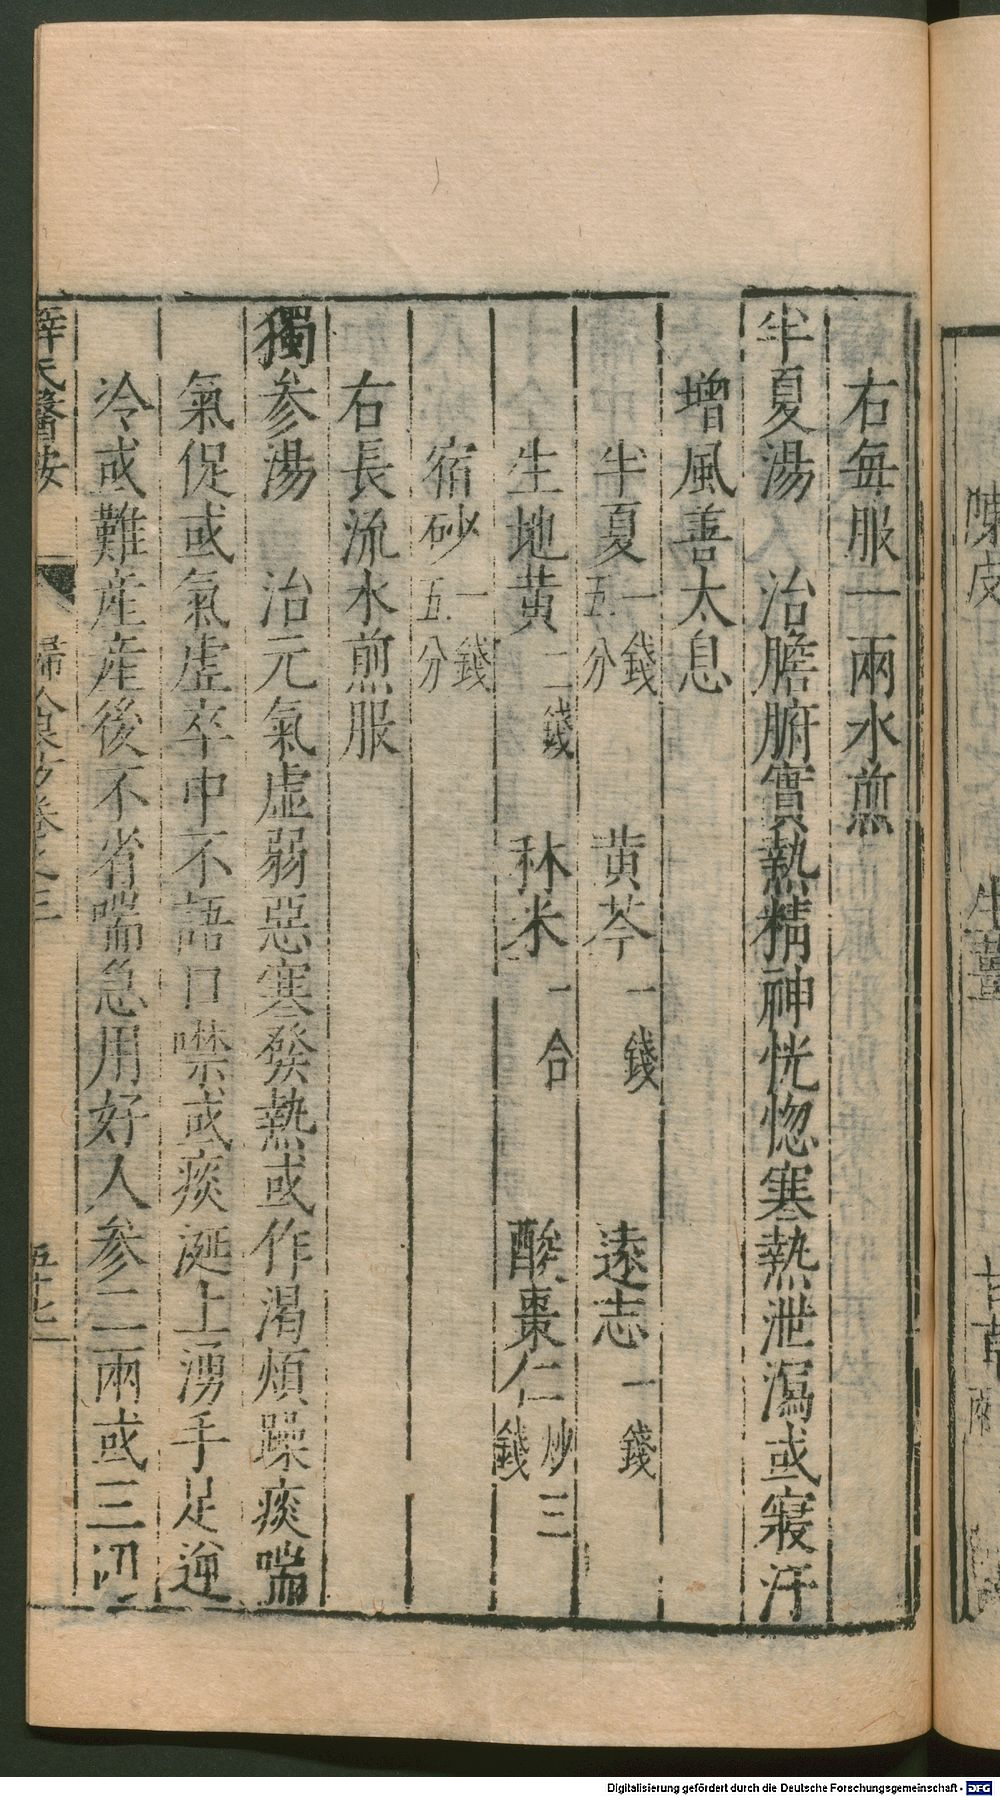 右每服一兩水煎
半夏湯　治膽腑實熱精神恍惚寒熱泄瀉或寢汗
增風善太息
半夏一錢五分　黄芩一錢　遠志一錢
生地黄二錢　秫米一合　酸棗仁炒三錢
宿砂一錢五分
右長流水煎服
獨參湯　治元氣虛弱惡寒發熱或作渴煩躁痰喘
氣促或氣虛卒中不語口噤或痰涎上湧手足逆
冷或難産産後不省喘急用好人參二兩或三
薛氏醫按　婦人良方卷之三　五十七
陳皮　生薑　甘草
Digitalisierung gefördert durch die Deutsche Forschungsgemeinschaft - DFG